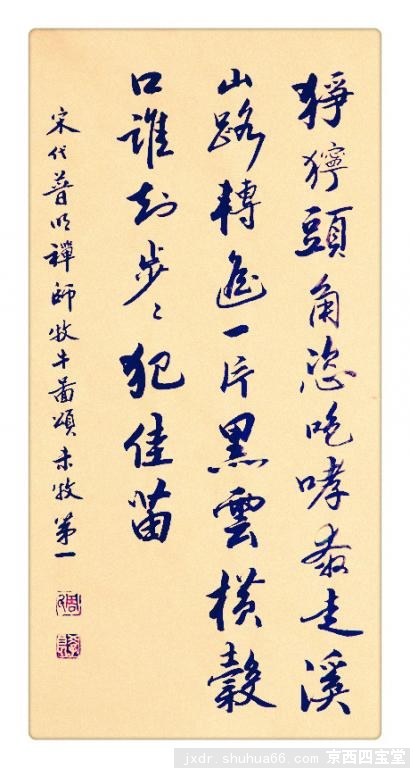 猙獰頭角恣咆哮奔走溪
山路轉遙一片黑雲橫穀
口誰知步々犯佳苗
宋代普明禪師牧牛圖頌未牧第一
京西四宝堂
jxdr.shuhua66.com